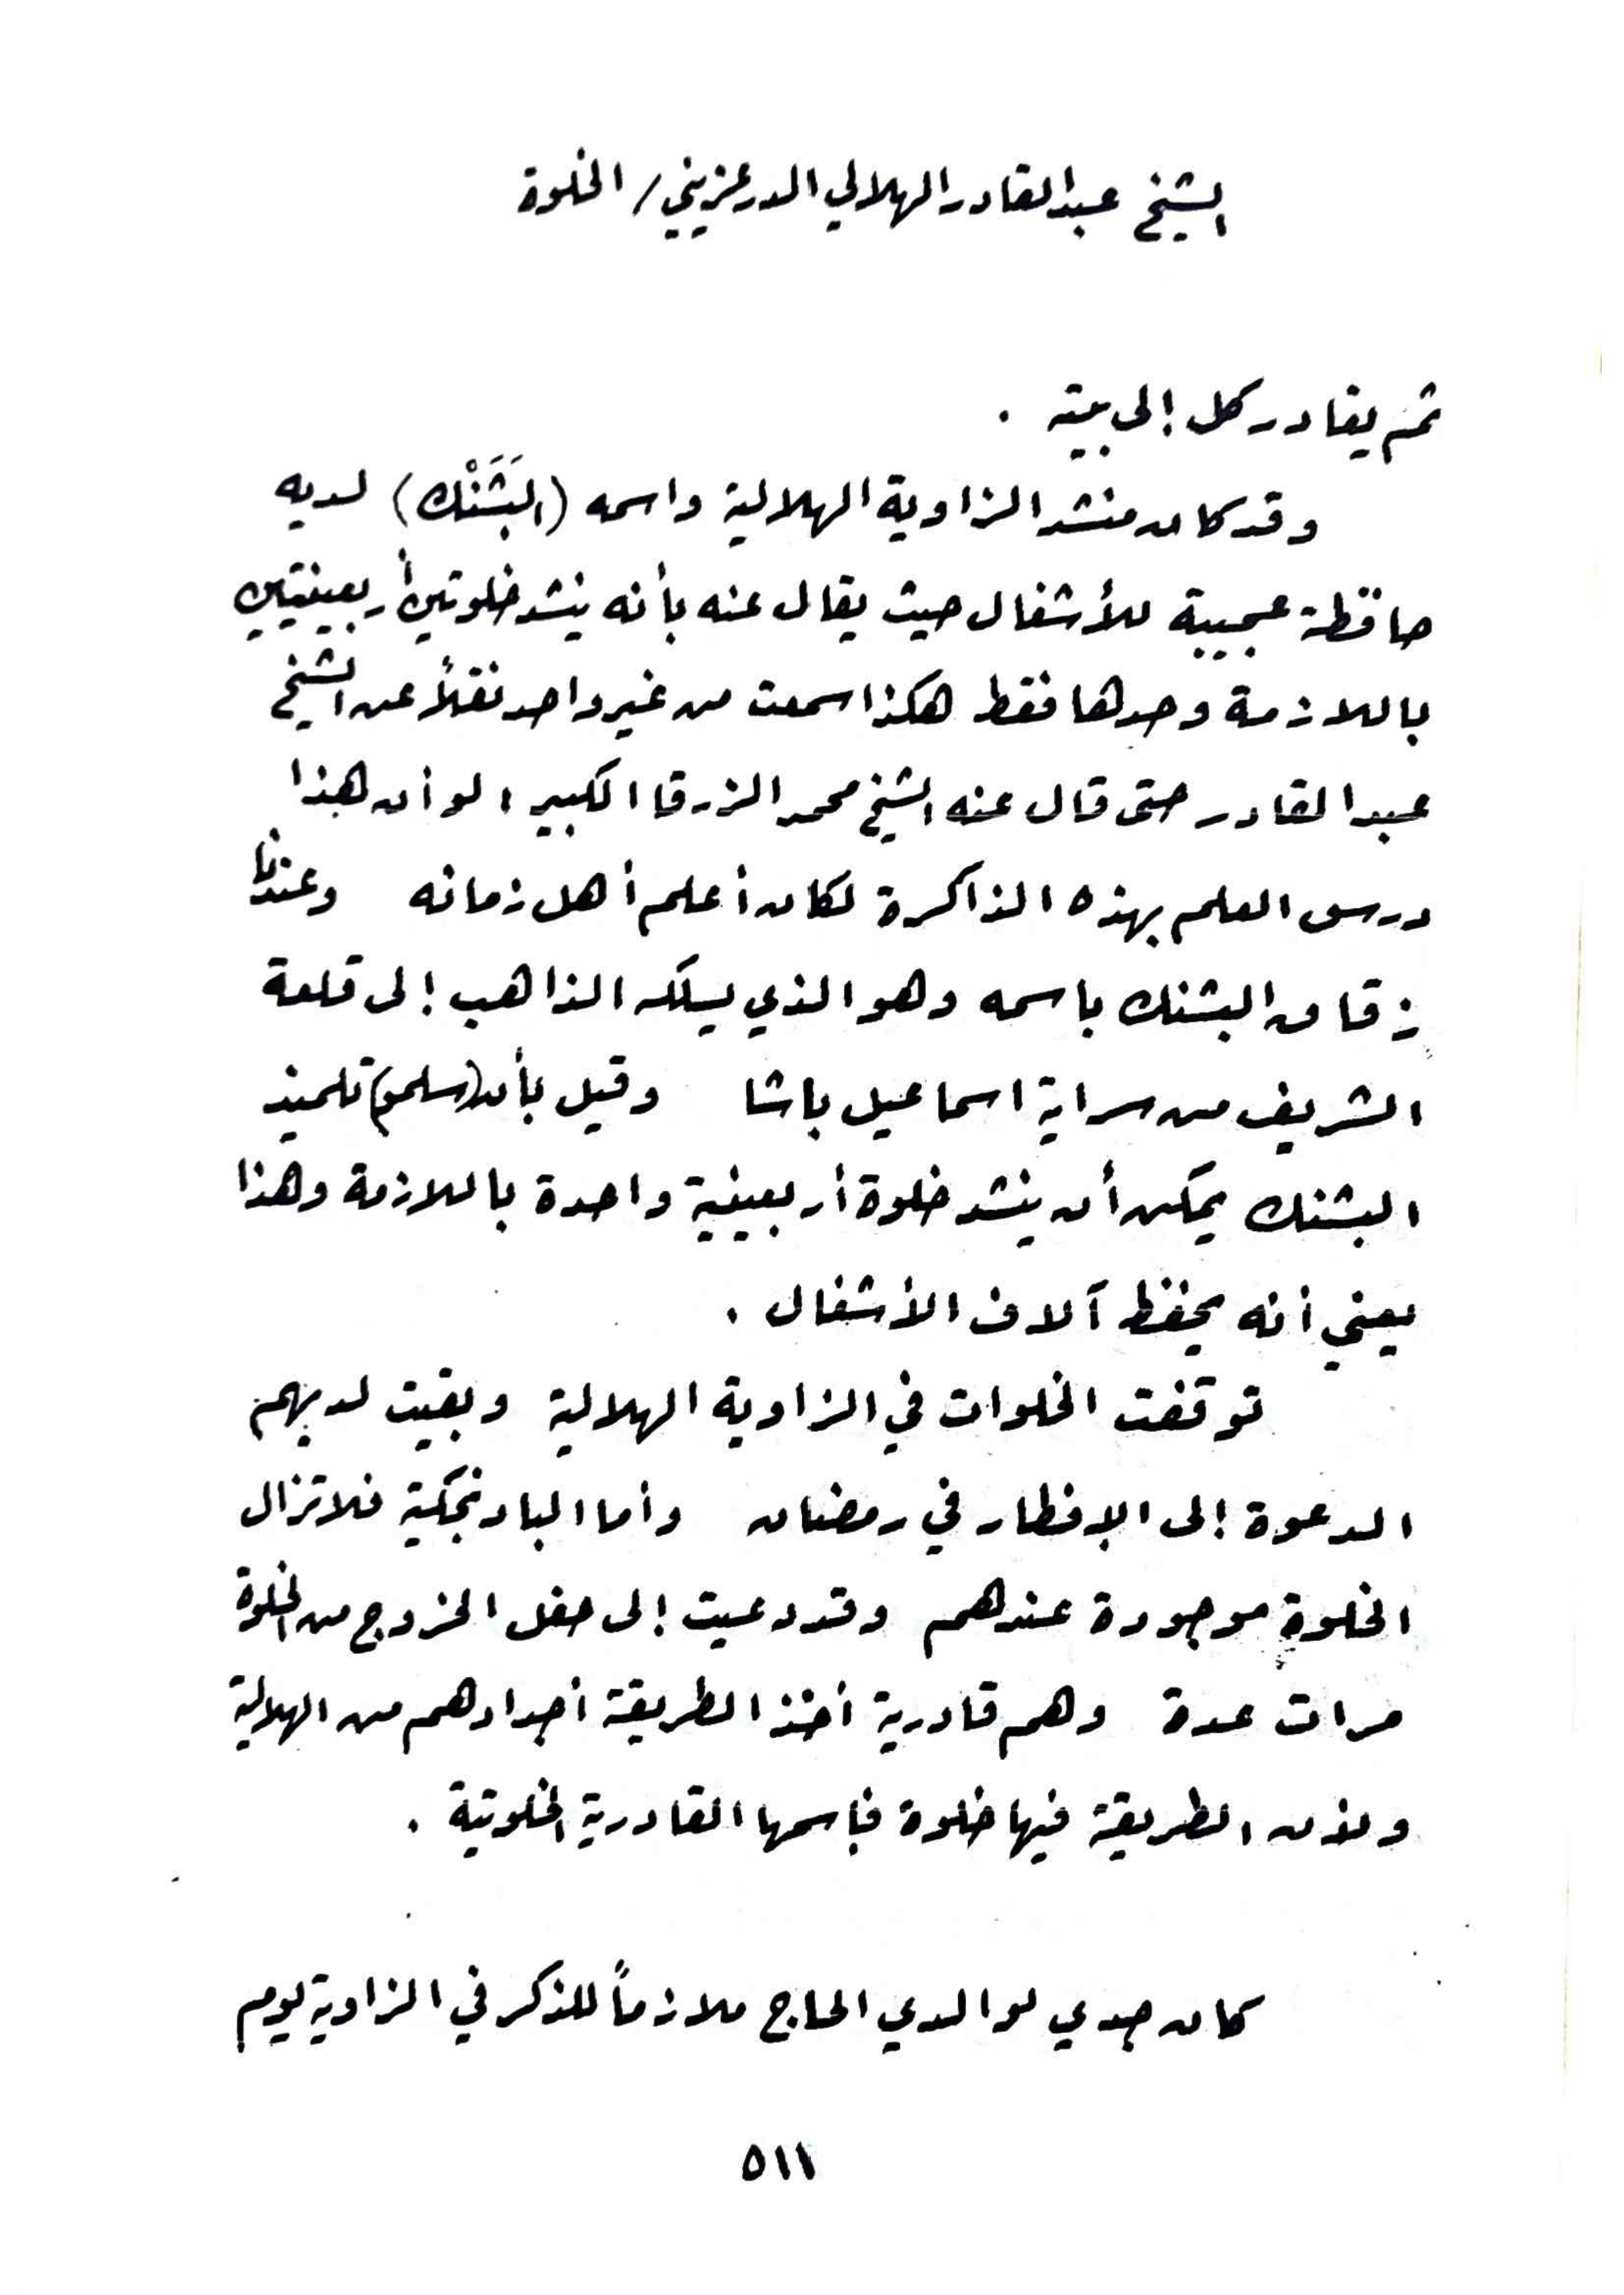 الشيخ عبدالقادر الهلالي الدرعزيني / الخلوة
ثم يغادر كل إلى بيته .
وقد كان منشد الزاوية الهلالية واسمه (البَشَنْك) لديه
حافظة عجيبة للأشغال حيث يقال عنه بأنه ينشد خلوتين أربعينيتين
باللازمة وحدها فقط هكذا سمعت من غير واحد نقلاً عن الشيخ
عبدالقادر حتى قال عنه الشيخ محمد الزرقا الكبير ، لو أن هذا
درس العلم بهذه الذاكرة لكان أعلم أهل زمانه وعندنا
زقاق البشنك باسمه وهو الذي يسلكه الذاهب إلى قلعة
الشريف من سراية اسماعيل باشا وقيل بأن (سلمو) تلميذ
البشنك يمكن أن ينشد خلوة أربعينية واحدة باللازمة وهذا
يعني أنه يحفظ آلاف الأشغال .
توقفت الخلوات في الزاوية الهلالية وبقيت لديهم
الدعوة إلى الإفطار في رمضان وأما البادنجكية فلا تزال
الخلوة موجودة عندهم وقد دعيت إلى حفل الخروج من الخلوة
مرات عدة وهم قادرية أخذ الطريقة أجدادهم من الهلالية
ولأن الطريقة فيها خلوة فاسمها القادرية الخلوتية .
كان جدي لوالدي الحاج ملازماً للذكر في الزاوية يوم
٥١١